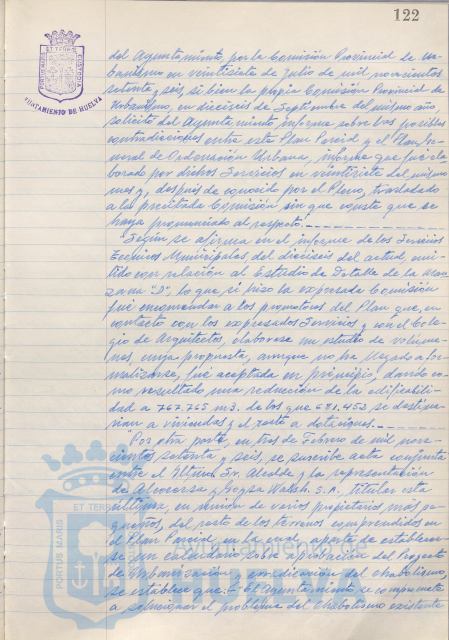 122
AYUNTAMIENTO DE HUELVA
del Ayuntamiento, por la Comisión Provincial de Ur-
banismo en veintisiete de Julio de mil novecientos
setenta y seis, si bien la propia Comisión Provincial de
Urbanismo, en dieciséis de Septiembre del mismo año,
solicitó del Ayuntamiento, informe sobre las posibles
contradicciones entre este Plan Parcial y el Plan Ge-
neral de Ordenación Urbana, informe que fué ela-
borado por dichos Servicios en veintisiete del mismo
mes y, después de conocido por el Pleno, trasladado
a la precitada Comisión sin que conste que se
haya pronunciado al respecto.
"Según se afirma en el informe de los Servicios
Técnicos Municipales, del dieciseis del actual, emi-
tido con relación al Estudio de Detalle de la Man-
zana "D", lo que si hizo la expresada Comisión
fué encomendar a los promotores del Plan que, en
contacto con los expresados Servicios y con el Cole-
gio de Arquitectos, elaborase un estudio de volúme-
nes, cuya propuesta, aunque no ha llegado a for-
malizarse, fué aceptada en principio, dando co-
mo resultado una reducción de la edificabili-
dad a 767.765 m3. de los que 681.453 se destina-
rían a viviendas y el resto a dotaciones.
"Por otra parte, en tres de Febrero de mil nove-
cientos setenta y seis, se suscribe acta conjunta
entre el Iltmo. Sr. Alcalde y la representación
de y Walsh. S.A., titular esta
última, en unión de varios propietarios más pe-
queños, del resto de los terrenos comprendidos en
el Plan Parcial, en la cual, aparte de establecer-
se un calendario sobre aprobación del Proyecto
de Urbanización y erradicación del chabolismo,
se establece que: El Ayuntamiento se compromete
a solucionar el problema del chabolismo existente